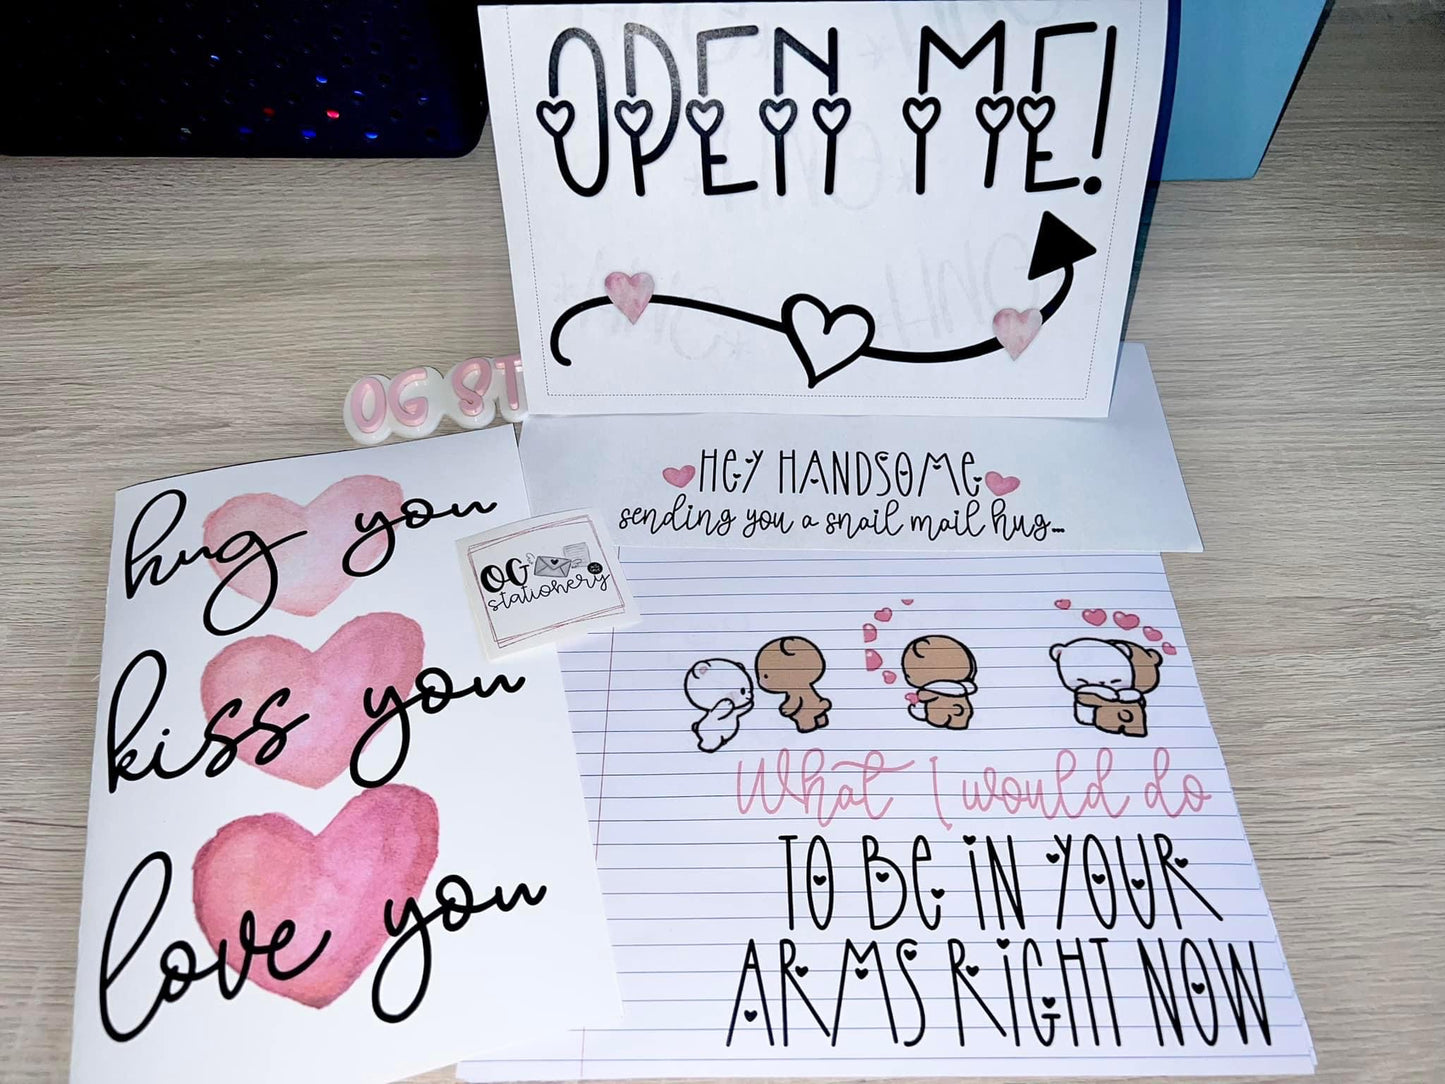 OPEN ME!
OG ST
HEY HANDSOME
sending you a snail mail hug...
hug you
kiss you
love you
OG
stationery
What I would do
TO BE IN YOUR
ARMS RIGHT NOW